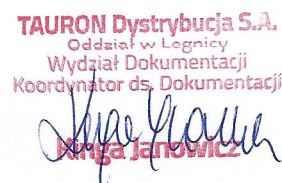 TAURON Dystrybucja S.A.
Oddział w Legnicy
Wydział Dokumentacji
Koordynator ds. Dokumentacji
Kinga Janowicz